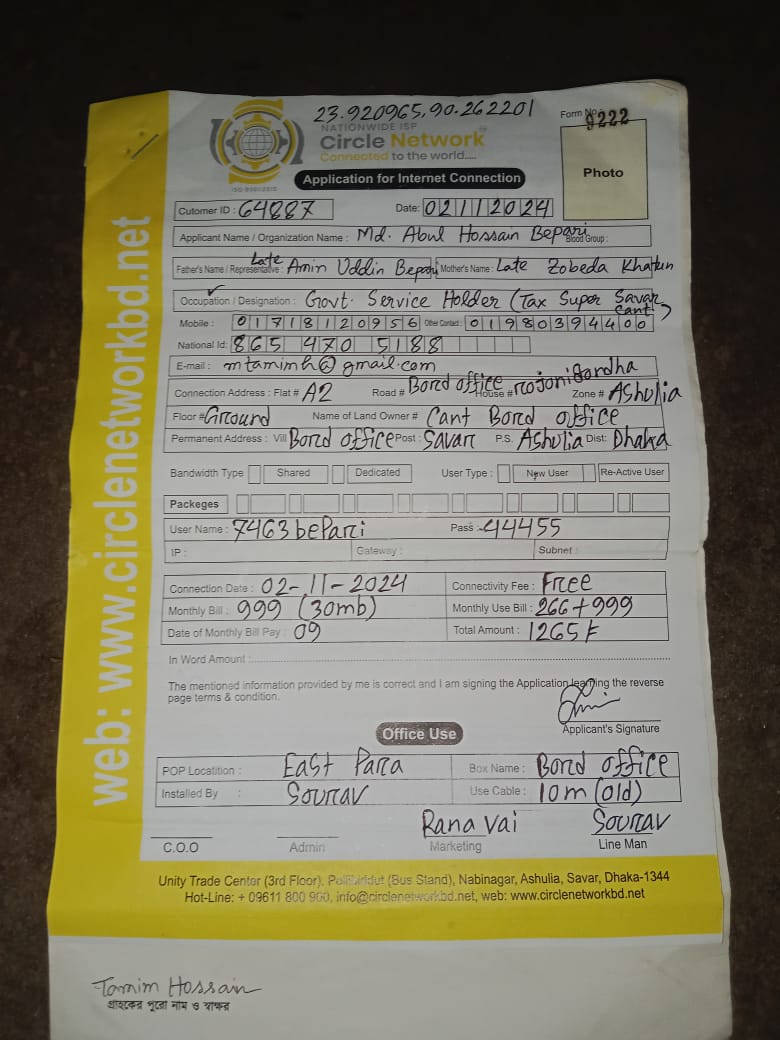 23.920965,90.262201
Form No. 9222
NATIONWIDE ISP
Circle Network
Connected to the world....
ISO 9001:2015
Photo
Application for Internet Connection
Cutomer ID : 64887 Date: 02112024
Applicant Name / Organization Name : Md. Abul Hossain Bepari Blood Group :
Father's Name / Representative : Late Amin Uddin Bepari Mother's Name : Late Zobeda Khatun
Occupation / Designation : Govt. Service Holder (Tax Super Savar Cant)
Mobile : 01718120956 Other Contact : 01980394400
National Id: 865 470 5188
E-mail : mtamimh@gmail.com
Connection Address : Flat # A2 Road # Bord office House # rojonigondha Zone # Ashulia
Floor # Ground Name of Land Owner # Cant Bord office
Permanent Address : Vill Bord office Post : Savar P.S. Ashulia Dist: Dhaka
Bandwidth Type Shared Dedicated User Type : New User Re-Active User
Packeges
User Name : 7463bepari Pass : 44455
IP : Gateway : Subnet :
Connection Date : 02-11-2024 Connectivity Fee : Free
Monthly Bill : 999 (30mb) Monthly Use Bill : 266+999
Date of Monthly Bill Pay : 09 Total Amount : 1265৳
In Word Amount :
The mentioned information provided by me is correct and I am signing the Application learning the reverse
page terms & condition.
Applicant's Signature
Office Use
POP Locatition : East Para Box Name : Bord office
Installed By : Sourav Use Cable : 10m (old)
Rana Vai Sourav
C.O.O Admin Marketing Line Man
Unity Trade Center (3rd Floor), (Bus Stand), Nabinagar, Ashulia, Savar, Dhaka-1344
Hot-Line: + 09611 800 900, info@circlenetworkbd.net, web: www.circlenetworkbd.net
web: www.circlenetworkbd.net
Tamim Hossain
গ্রাহকের পুরো নাম ও স্বাক্ষর